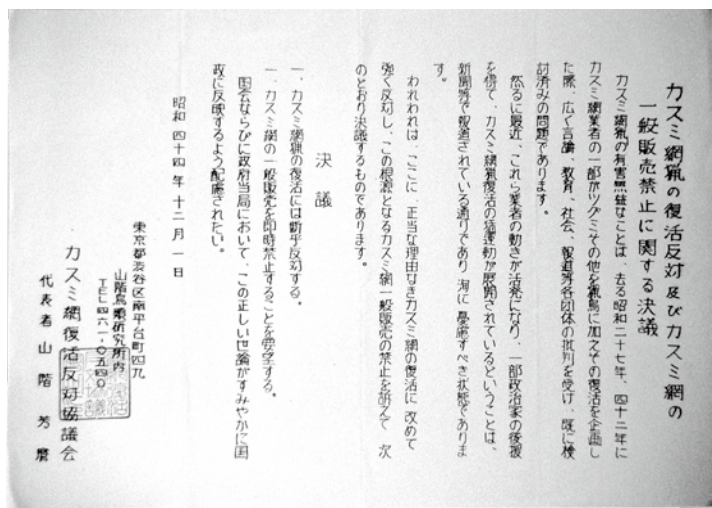 カスミ網猟の復活反対及びカスミ網の
一般販売禁止に関する決議
カスミ網猟の有害無益なことは、去る昭和二十七年、四十二年に
カスミ網業者の一部がツグミその他を猟鳥に加えその復活を企画し
た際、広く言論、教育、社会、報道等各団体の批判を受け、既に検
討済みの問題であります。
然るに最近、これら業者の動きが活発になり、一部政治家の後援
を得て、カスミ網猟復活の猛運動が展開されているということは、
新聞等で報道されている通りであり洵に憂慮すべき状態でありま
す。
われわれは、ここに、正当な理由なきカスミ網の復活に、改めて
強く反対し、この根源となるカスミ網一般販売の禁止を訴えて、次
のとおり決議するものであります。
決議
一、カスミ網猟の復活には断乎反対する。
一、カスミ網の一般販売を即時禁止することを要望する。
国会ならびに政府当局において、この正しい世論がすみやかに国
政に反映するよう配慮されたい。
昭和四十四年十二月一日
東京都渋谷区南平台町四九
山階鳥類研究所内
TEL四六一-〇五四〇
カスミ網復活反対協議会
代表者山階芳麿